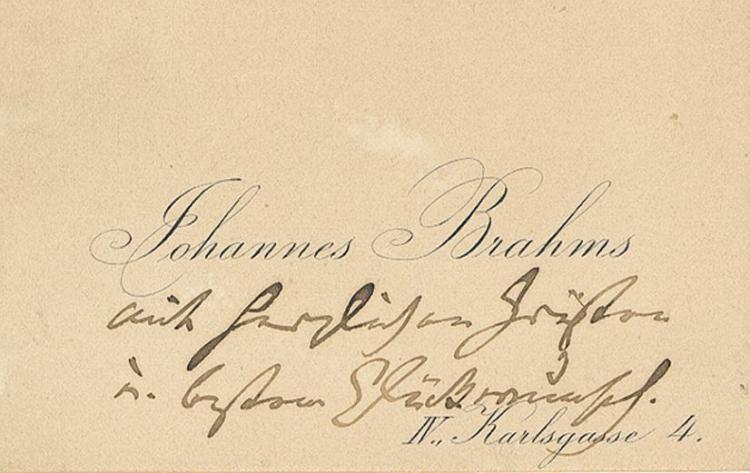 Johannes Brahms
mit herzlichen Grüßen
u. bestem Glückwunsch.
IV., Karlsgasse 4.